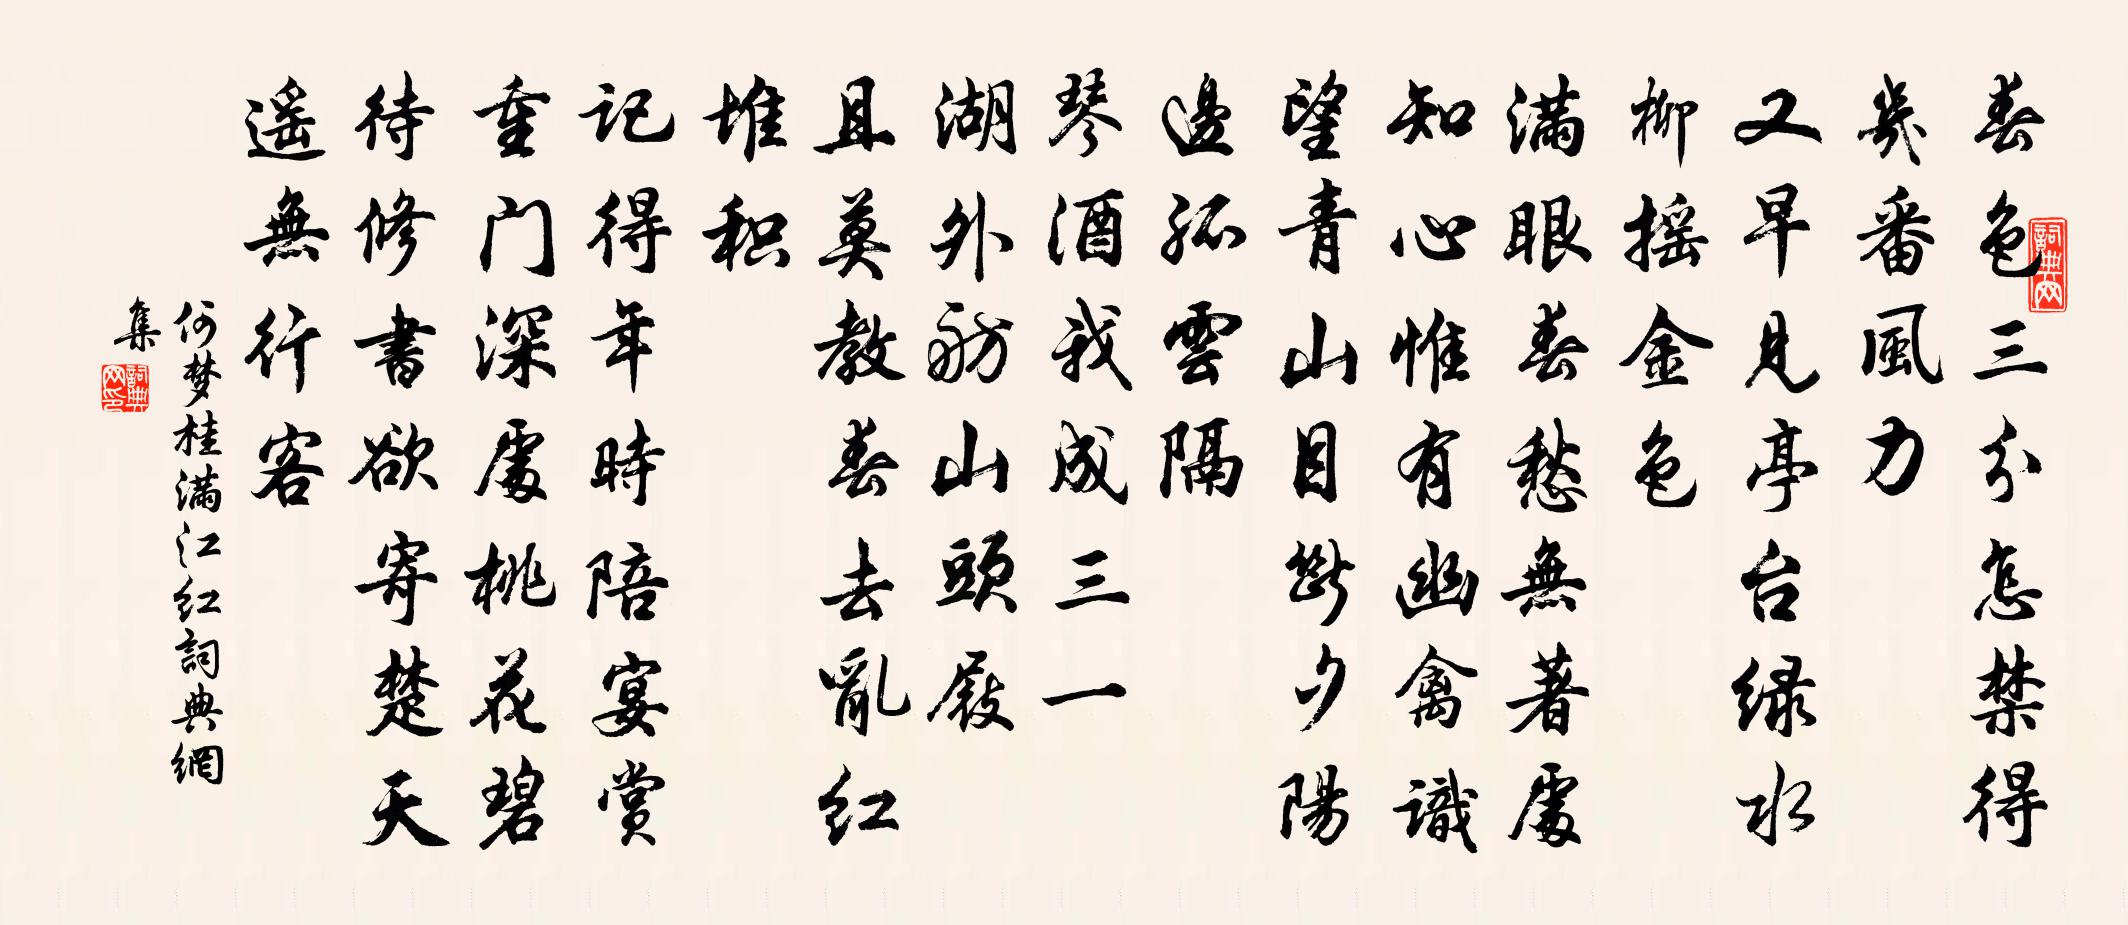 春色三分怎禁得
幾番風力
又早見亭台緑水
柳摇金色
满眼春愁無著處
知心惟有幽禽識
望青山目斷夕陽
邊孤雲隔
琴酒我成三一
湖外舫山頭屐
且莫教春去亂红
堆积
记得年時陪宴賞
重门深處桃花碧
待修書欲寄楚天
遥無行客
何梦桂满江红詞典網
集
詞典网
詞典网印